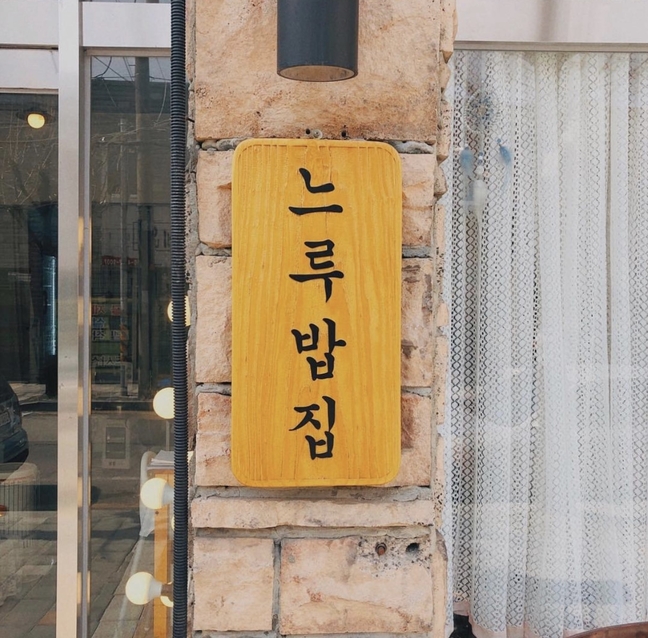 느루밥집